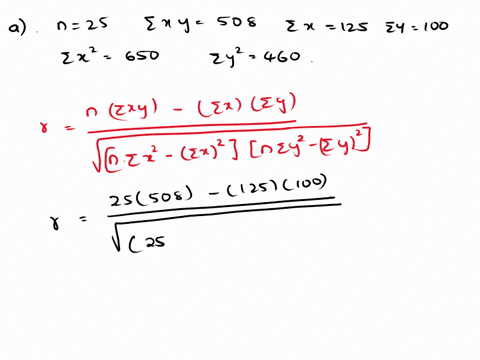 a) n=25 Σxy = 508 Σx = 125 Σy = 100
Σx² = 650 Σy² = 460.
r = n(Σxy) - (Σx)(Σy)
√[n.Σx² - (Σx)²] [nΣy² - (Σy)²]
r = 25(508) - (125)(100)
√(25